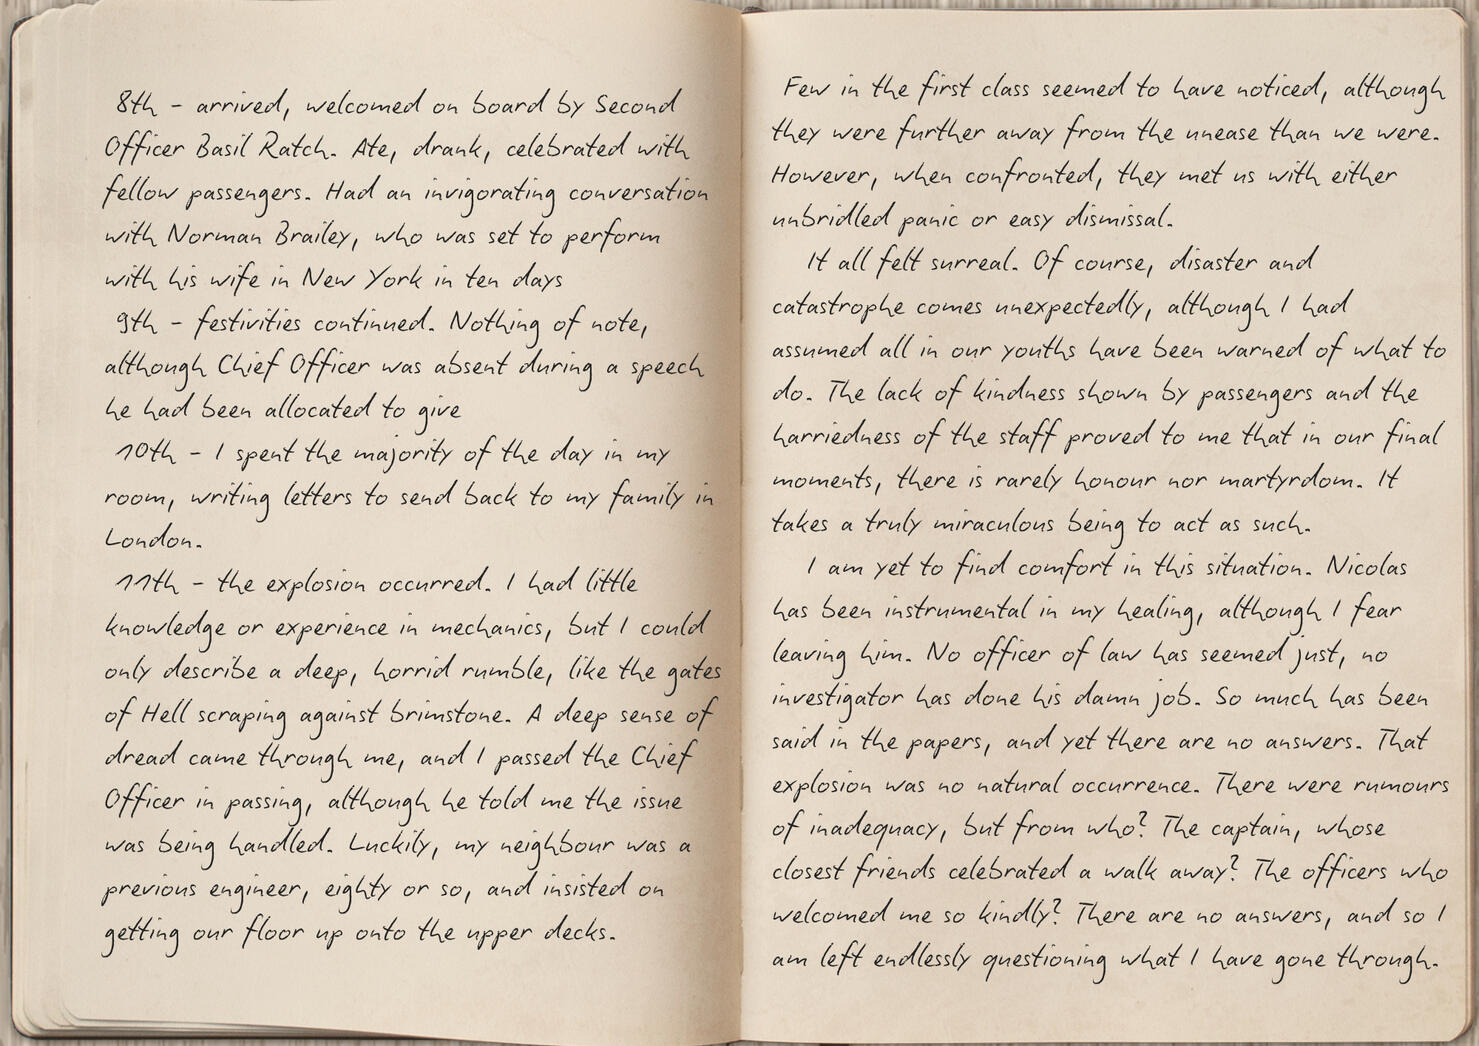 8th - arrived, welcomed on board by Second
Officer Basil Ratch. Ate, drank, celebrated with
fellow passengers. Had an invigorating conversation
with Norman Brailey, who was set to perform
with his wife in New York in ten days
9th - festivities continued. Nothing of note,
although Chief Officer was absent during a speech
he had been allocated to give
10th - I spent the majority of the day in my
room, writing letters to send back to my family in
London.
11th - the explosion occurred. I had little
knowledge or experience in mechanics, but I could
only describe a deep, horrid rumble, like the gates
of Hell scraping against brimstone. A deep sense of
dread came through me, and I passed the Chief
Officer in passing, although he told me the issue
was being handled. Luckily, my neighbour was a
previous engineer, eighty or so, and insisted on
getting our floor up onto the upper decks.
Few in the first class seemed to have noticed, although
they were further away from the unease than we were.
However, when confronted, they met us with either
unbridled panic or easy dismissal.
It all felt surreal. Of course, disaster and
catastrophe comes unexpectedly, although I had
assumed all in our youths have been warned of what to
do. The lack of kindness shown by passengers and the
harriedness of the staff proved to me that in our final
moments, there is rarely honour nor martyrdom. It
takes a truly miraculous being to act as such.
I am yet to find comfort in this situation. Nicolas
has been instrumental in my healing, although I fear
leaving him. No officer of law has seemed just, no
investigator has done his damn job. So much has been
said in the papers, and yet there are no answers. That
explosion was no natural occurrence. There were rumours
of inadequacy, but from who? The captain, whose
closest friends celebrated a walk away? The officers who
welcomed me so kindly? There are no answers, and so I
am left endlessly questioning what I have gone through.